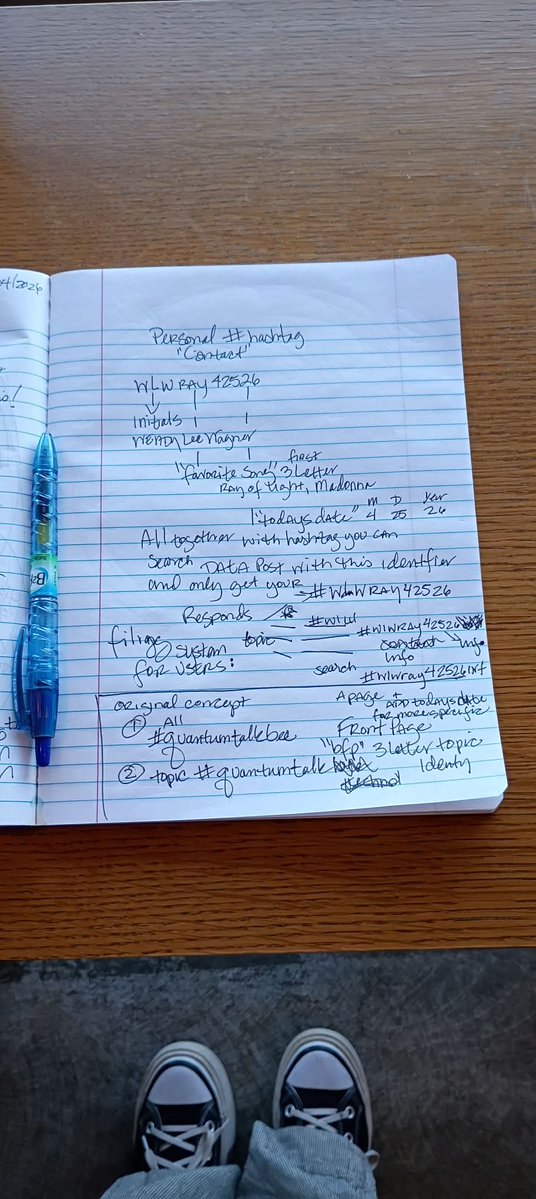 4/2026
Personal #hashtag
"Contact"
WLWRAY42526
Initials
Wendy Lee Wagner
"favorite song" first 3 Letter
Ray of Light, Madonna
"todays date" M 4 D 25 Year 26
All together with hashtag you can
search DATA Post with this identifier
and only get your #WLWRAY42526
Responds
#wlw
filing system
topic
#WLWRAY42526
contact info
Info
for users:
search #wlwray42526inf
original concept
A page + ADD todays date
for more specific
① All
#quantumtalkbee
Front Page
"bfp" 3 letter topic
② topic #quantumtalk
Identy